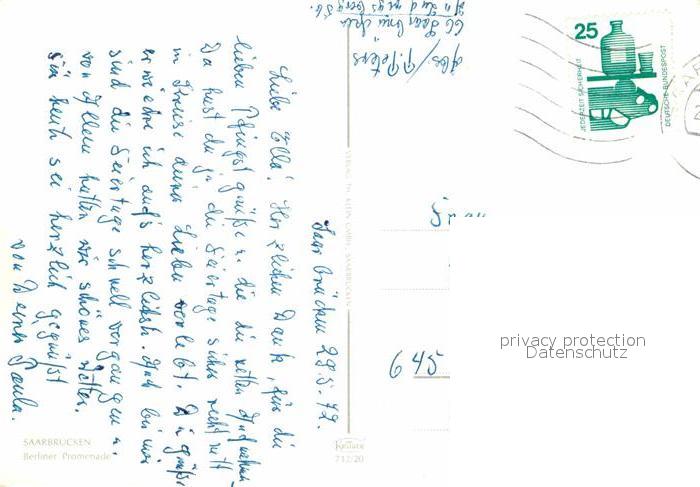 Saarbrücken 29.5.72.
Liebe Ella! Herzlichen Dank, für die
lieben Pfingstgrüße u. die netten
Da hast du ja die Feiertage sicher recht nett
im Kreise deiner Lieben verlebt. Die Grüße
erwiedre ich aufs herzlichste. Auch bei mir
sind die Feiertage schnell vergangen u.
vor Allem hatten wir schönes Wetter.
Für heute sei herzlich gegrüßt
von Deiner Paula.
Abs/ P. Peters
66 Saarbrücken
Frau
645
25
JEDERZEIT SICHERHEIT
DEUTSCHE BUNDESPOST
privacy protection
Datenschutz
SAARBRÜCKEN
Berliner Promenade
Krüger
712/20